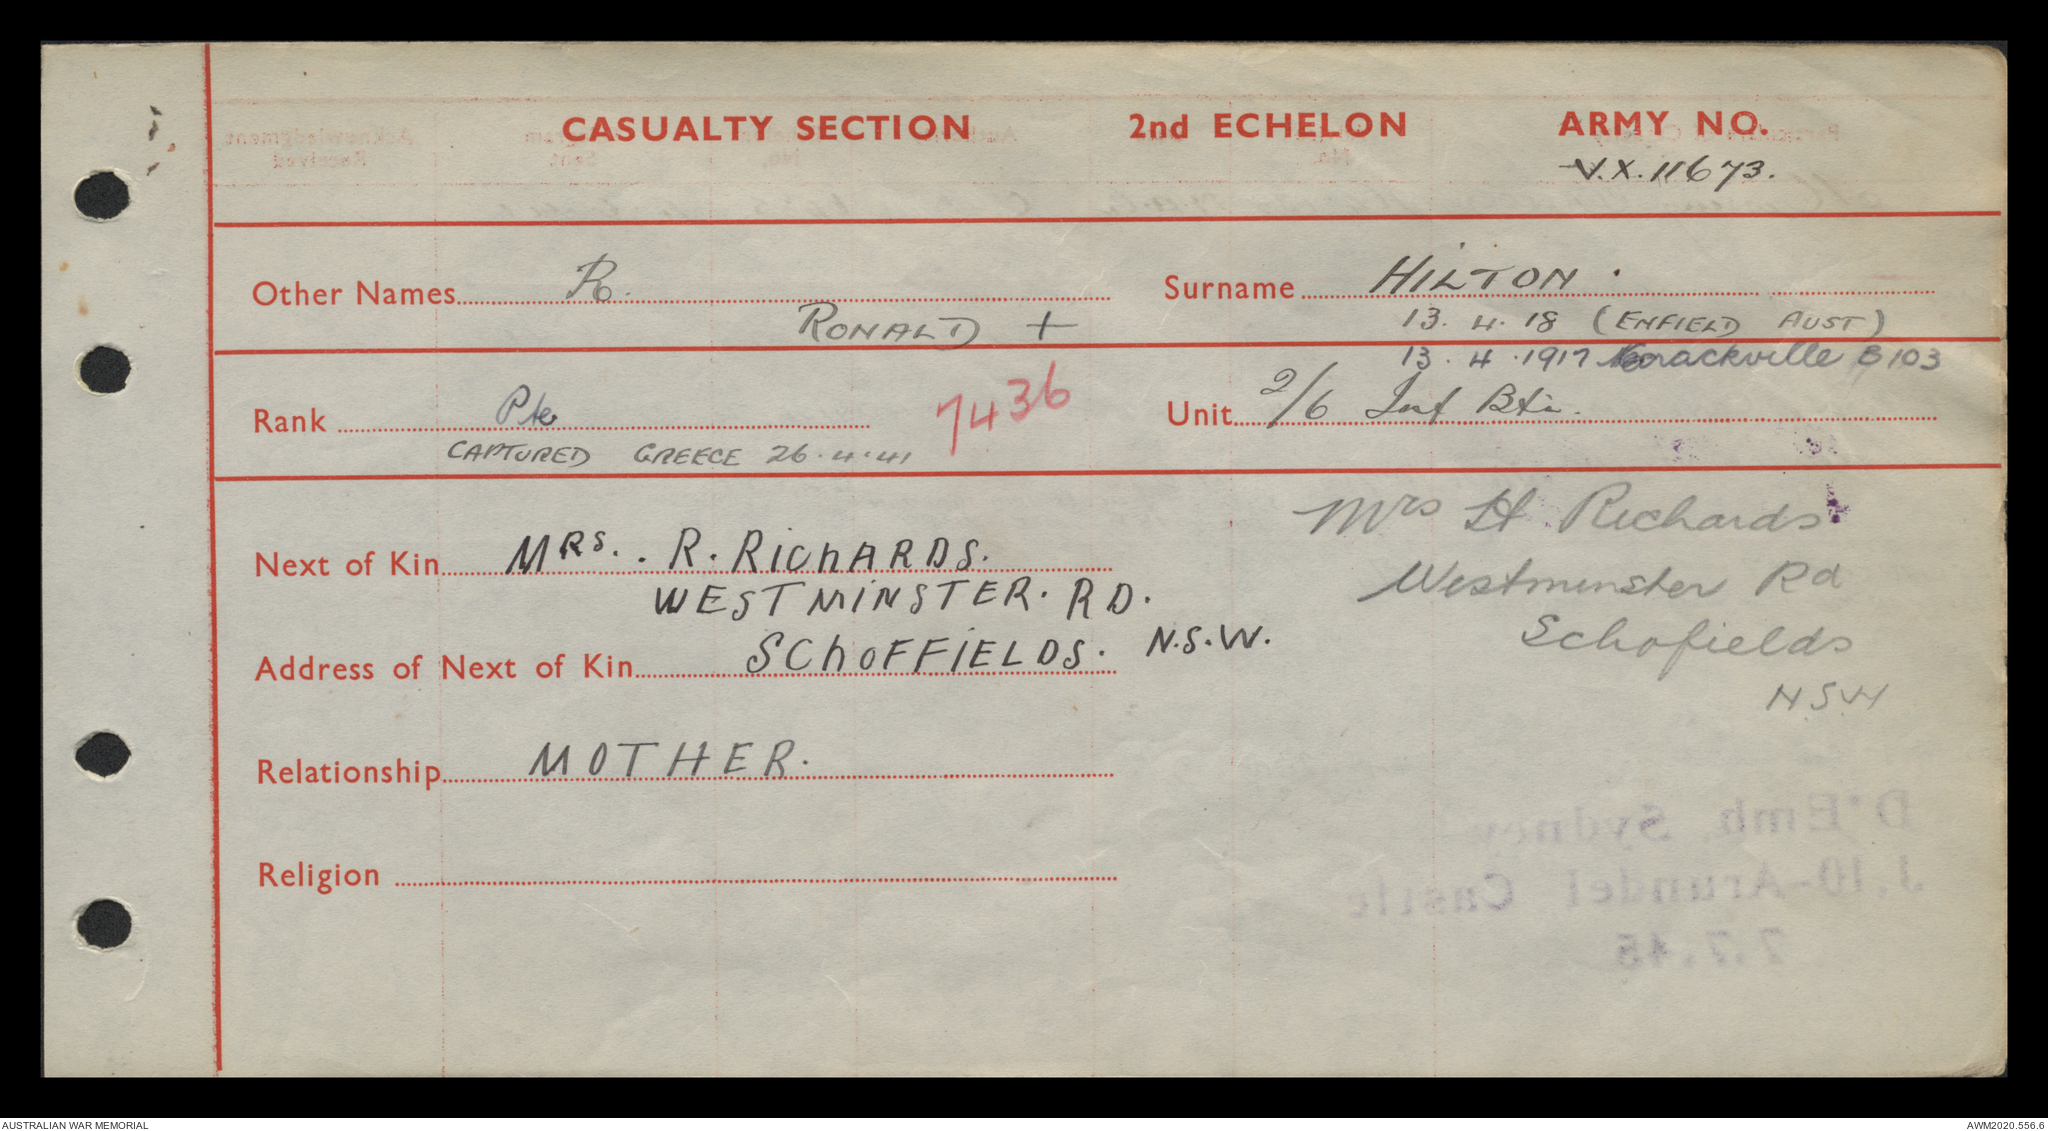 CASUALTY SECTION 2nd ECHELON ARMY NO.
V.X. 11673.
Other Names R. Surname HILTON.
RONALD + 13. 4. 18 (ENFIELD AUST)
13. 4. 1917 Marrackville B103
Rank Pte 7436 Unit 2/6 Inf Btn.
CAPTURED GREECE 26.4.41
Mrs H Richards
Westminster Rd
Schofields
N.S.W
Next of Kin MRS. R. RICHARDS.
WESTMINSTER. RD.
Address of Next of Kin SCHOFFIELDS. N.S.W.
Relationship MOTHER.
Religion
D'Emb. Sydney
J.10-Arundel Castle
7.7.45
AUSTRALIAN WAR MEMORIAL AWM2020.556.6